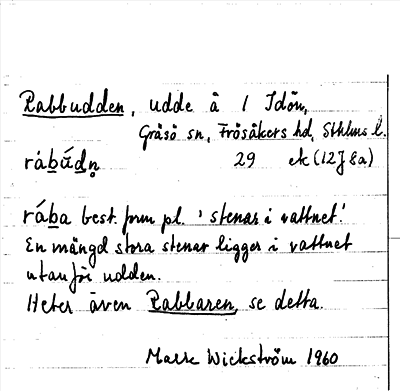 Rabbudden, udde å 1 Idön,
Gräsö sn, Frösåkers hd, Sthlms l.
rábu̇́dn̥ 29 ek (12J 8a)
rába best. form pl. 'stenar i vattnet'.
En mängd stora stenar ligger i vattnet
utanför udden.
Heter även Rabbaren, se detta.
Wickström 1960